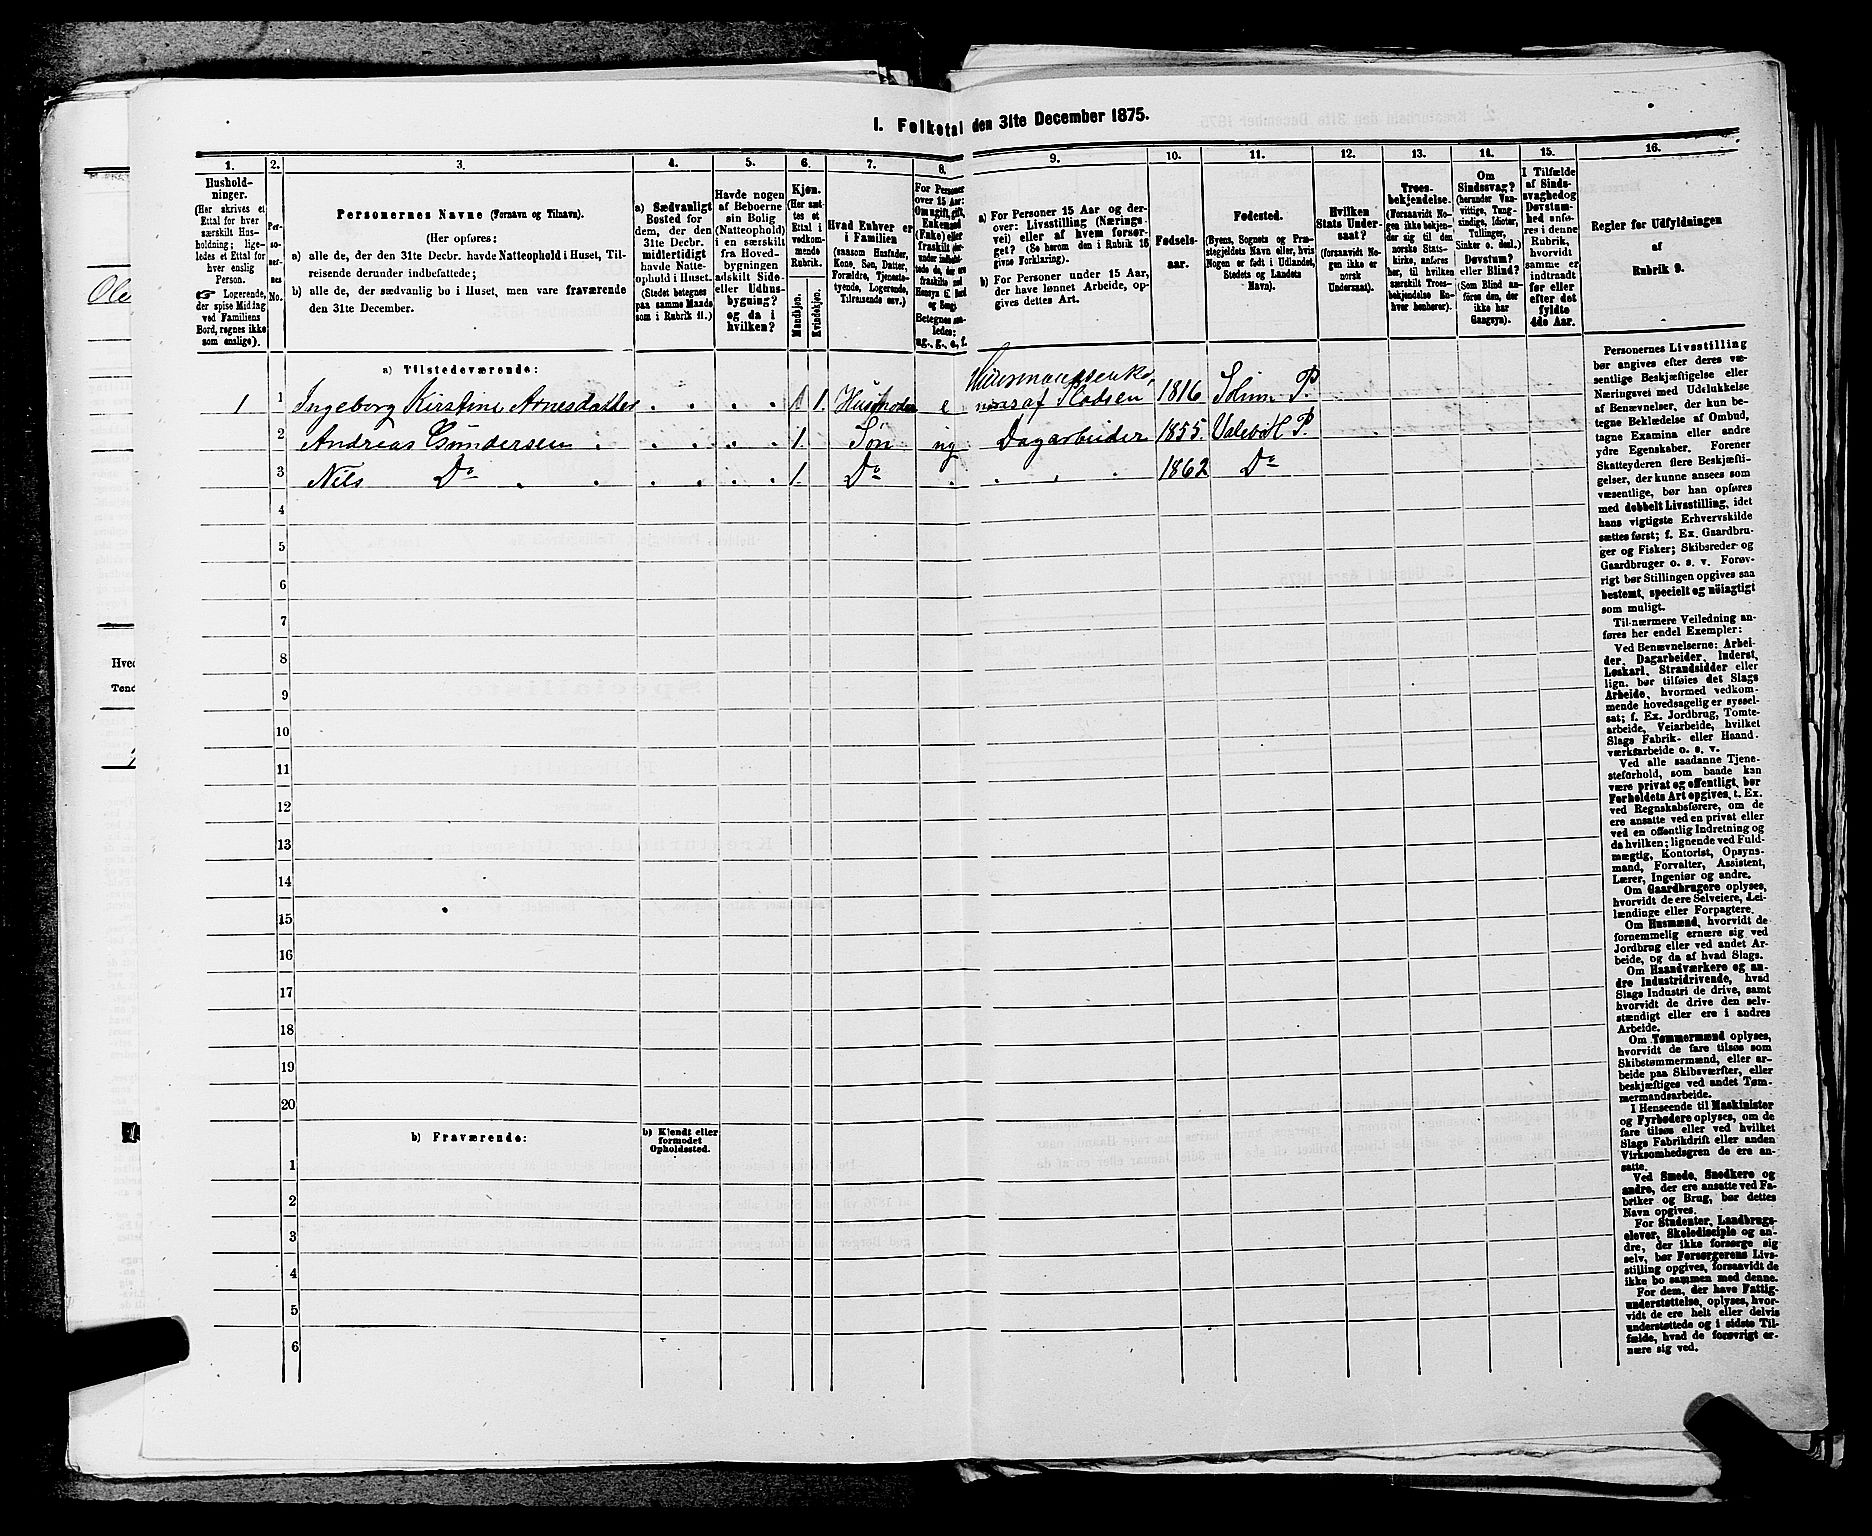 I. Folketal den 31te December 1875.
1.
2.
3.
4.
5.
6.
7.
8.
9.
10.
11.
12.
13.
14.
15.
16.
Hushold-
ninger.
(Her skrives et
Ettal for hver
særskilt Hus-
holdning; lige-
ledes et Ettal for
hver enslig
Person.
☞ Logerende,
der spise Middag
ved Familiens
Bord, regnes ikke
som enslige).
Per-
so-
ner-
nes
No.
Personernes Navne (Fornavn og Tilnavn).
(Her opføres:
a) alle de, der den 31te Decbr. havde Natteophold i Huset, Til-
reisende derunder indbefattede;
b) alle de, der sædvanlig bo i Huset, men vare fraværende
den 31te December.
a) Sædvanligt
Bosted for
dem, der den
31te Decbr.
midlertidigt
havde Natte-
ophold i Huset.
(Stedet betegnes
paa samme Maade
som i Rubrik 11.)
Havde nogen
af Beboerne
sin Bolig
(Natteophold)
i en særskilt
fra Hoved-
bygningen
adskilt Side-
eller Udhus-
bygning?
og da i
hvilken?
Kjøn.
(Her sæt-
tes et
Ettal i
vedkom-
mende
Rubrik.
Mandkjøn.
Kvindekjøn.
Hvad Enhver er
i Familien
(saasom Husfader,
Kone, Søn, Datter,
Forældre, Tjeneste-
tyende, Logerende,
Tilreisende osv.)
For Personer
over 15 Aar:
Om ugift, gift,
Enkemand
(Enke) eller
fraskilt
Betegnes saa-
ledes:
ug., g., e., f.
a) For Personer 15 Aar og der-
over: Livsstilling (Nærings-
vei) eller af hvem forsør-
get? (Se herom den i Rubrik 16
givne Forklaring).
b) For Personer under 15 Aar,
der have lønnet Arbeide, op-
gives dettes Art.
Fødsels-
aar.
Fødested.
(Byens, Sognets og Præ-
stegjeldets Navn eller, hvis
Nogen er født i Udlandet,
Stedets og Landets
Navn).
Hvilken
Stats Under-
saat?
(forsaavidt No-
gen ikke er
norsk
Undersaat).
Troes-
bekjendelse.
(Forsaavidt No-
gen ikke bekjen-
der sig til den
norske Stats-
kirke, anføres
her, til hvilken
særskilt Troes-
bekjendelse En-
hver henhører).
Om
Sindssvag?
(herunder Van-
vittige, Tung-
sindige, Idioter,
Tullinger,
Sinker o. desl.)
Døvstum?
eller Blind?
(Som Blind an-
føres den, der
ikke har
Gangsyn).
I Tilfælde
af Sinds-
svaghed og
Døvstum-
hed anfø-
res i denne
Rubrik,
hvorvidt
samme er
indtraadt
før eller
efter det
fyldte
4de Aar.
Regler for Udfyldningen
af
Rubrik 9.
a) Tilstedeværende:
1 1 Ingeborg Kirstine Arnesdatter 1. Husmoder e Huusmandsenke 1816 Solum P.
2 Andreas Gundersen 1. Søn ug Dagarbeider 1855. P.
3 Nils Do 1. Do 1862 Do
4
5
6
7
8
9
10
11
12
13
14
15
16
17
18
19
20
b) Fraværende:
b) Kjendt eller
formodet
Opholdssted.
1
2
3
4
5
6
Personernes Livsstilling
bør angives efter deres væ-
sentlige Beskjæftigelse eller
Næringsvei med Udelukkelse
af Benævnelser, der kun be-
tegne Beklædelse af Ombud,
tagne Examina eller andre
ydre Egenskaber. Forener
Skatteyderen flere Beskjæfti-
gelser, der kunne ansees som
væsentlige, bør han opføres
med dobbelt Livsstilling, idet
hans vigtigste Erhvervskilde
sættes først; f. Ex. Gaardbru-
ger og Fisker; Skibsreder og
Gaardbruger o. s. v. Forøv-
rigt bør Stillingen opgives saa
bestemt, specielt og nøiagtigt
som muligt.
Til nærmere Veiledning an-
føres her endel Exempler:
Ved Benævnelserne: Arbei-
der, Dagarbeider, Inderst,
Løskarl, Strandsidder eller
lign. bør tilføies det Slags
Arbeide, hvormed vedkom-
mende hovedsagelig er syssel-
sat; f. Ex. Jordbrug, Tomte-
arbeide, Veiarbeide, hvilket
Slags Fabrik- eller Haand-
værksarbeide o. s. v.
Ved alle saadanne Tjene-
steforhold, som baade kan
være privat og offentligt, bør
Forholdets Art opgives, t. Ex.
ved Regnskabsførere, om de
ere ansatte ved en privat eller
ved en offentlig Indretning og
da hvilken; lignende ved Fuld-
mægtig, Kontorist, Opsyns-
mand, Forvalter, Assistent,
Lærer, Ingeniør og andre.
Om Gaardbrugere oplyses,
hvorvidt de ere Selveiere, Lei-
lændinge eller Forpagtere.
Om Husmænd, hvorvidt de
fornemmelig ernære sig ved
Jordbrug eller ved andet Ar-
beide, og da af hvad Slags.
Om Haandværkere og an-
dre Industridrivende, hvad
Slags Industri de drive, samt
hvorvidt de drive den selv-
stændigt eller ere i andres
Arbeide.
Om Tømmermænd oplyses,
hvorvidt de fare tilsøs som
Skibstømmermænd, eller ar-
beide paa Skibsværfter, eller
beskjæftiges ved andet Tøm-
mermandsarbeide.
I Henseende til Maskinister
og Fyrbødere oplyses, om de
fare tilsøs eller ved hvilket
Slags Fabrikdrift eller anden
Virksomhedsgren de ere an-
satte.
Ved Smede, Snedkere og
andre, der ere ansatte ved Fa-
briker og Brug, bør dettes
Navn opgives.
For Studenter, Landbrugs-
elever, Skoledisciple og an-
dre, der ikke forsørge sig
selv, bør Forsørgerens Livs-
stilling opgives, forsaavidt de
ikke bo sammen med denne.
For dem, der have Fattig-
understøttelse, oplyses, hvor-
vidt de ere helt eller delvis
understøttede og i sidste Til-
fælde, hvad de forøvrigt er-
nære sig ved.
Ole
Hved
Tønd